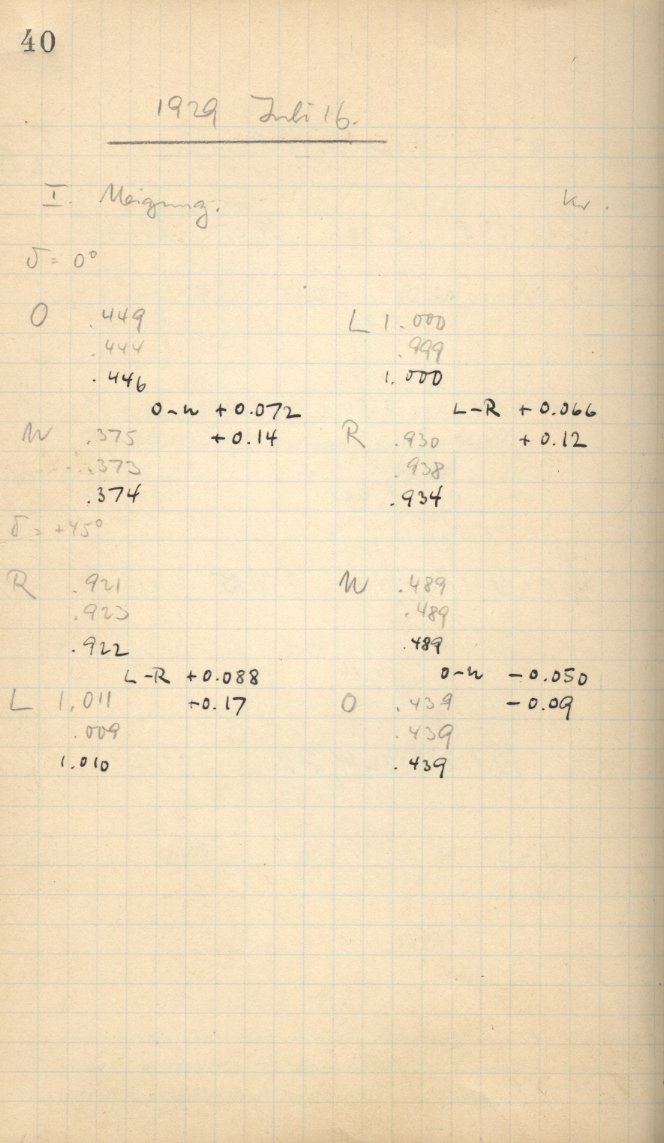 40
1929 Juli 16.
I. Neigung. Kr.
δ = 0°
O .449 L 1.000
.444 .999
.446 1.000
O-W +0.072 L-R +0.066
W .375 +0.14 R .930 +0.12
.373 .938
.374 .934
δ = +45°
R .921 W .489
.923 .489
.922 .489
L-R +0.088 O-W -0.050
L 1.011 +0.17 O .439 -0.09
.009 .439
1.010 .439